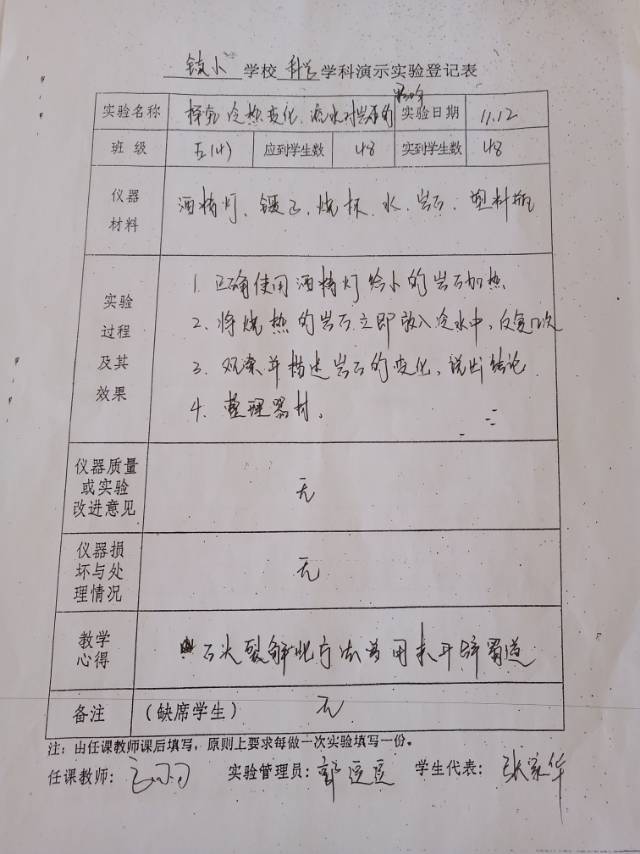 镇小 学校 科学 学科演示实验登记表
实验名称 探究冷热变化、流水对岩石的影响 实验日期 11.12
班 级 五(4) 应到学生数 48 实到学生数 48
仪器
材料
酒精灯、镊子、烧杯、水、岩石、塑料瓶
实验
过程
及其
效果
1. 正确使用酒精灯给小的岩石加热
2、将烧热的岩石立即放入冷水中,反复几次
3、观察并描述岩石的变化,说出结论
4、整理器材。
仪器质量
或实验
改进意见
无
仪器损
坏与处
理情况
无
教学
心得
石头裂解此方法曾用来开辟蜀道
备注 (缺席学生) 无
注:由任课教师课后填写,原则上要求每做一次实验填写一份。
任课教师: 实验管理员:郭逗逗 学生代表:张家华